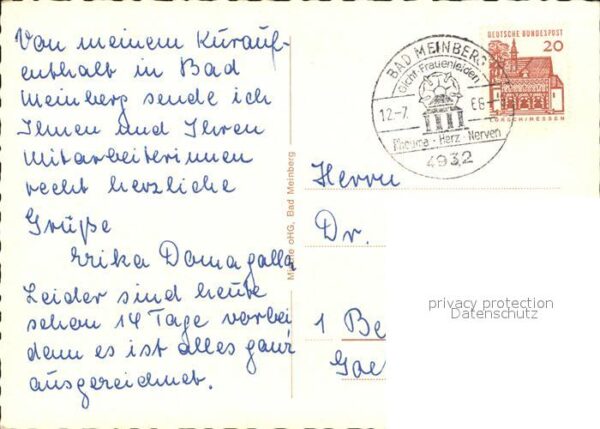 Von meinem Kurauf-
enthalt in Bad
Meinberg sende ich
Ihnen und Ihren
Mitarbeiterinnen
recht herzliche
Grüße
Erika Domagalla
Leider sind heute
schon 14 Tage vorbei
denn es ist alles ganz
ausgezeichnet.
oHG, Bad Meinberg
BAD MEINBERG
Gicht-Frauenleiden
12.-7. 66-
Rheuma - Herz - Nerven
4932
DEUTSCHE BUNDESPOST
20
LORSCH/HESSEN
Herrn
Dr.
1 Be
Goe
privacy protection
Datenschutz